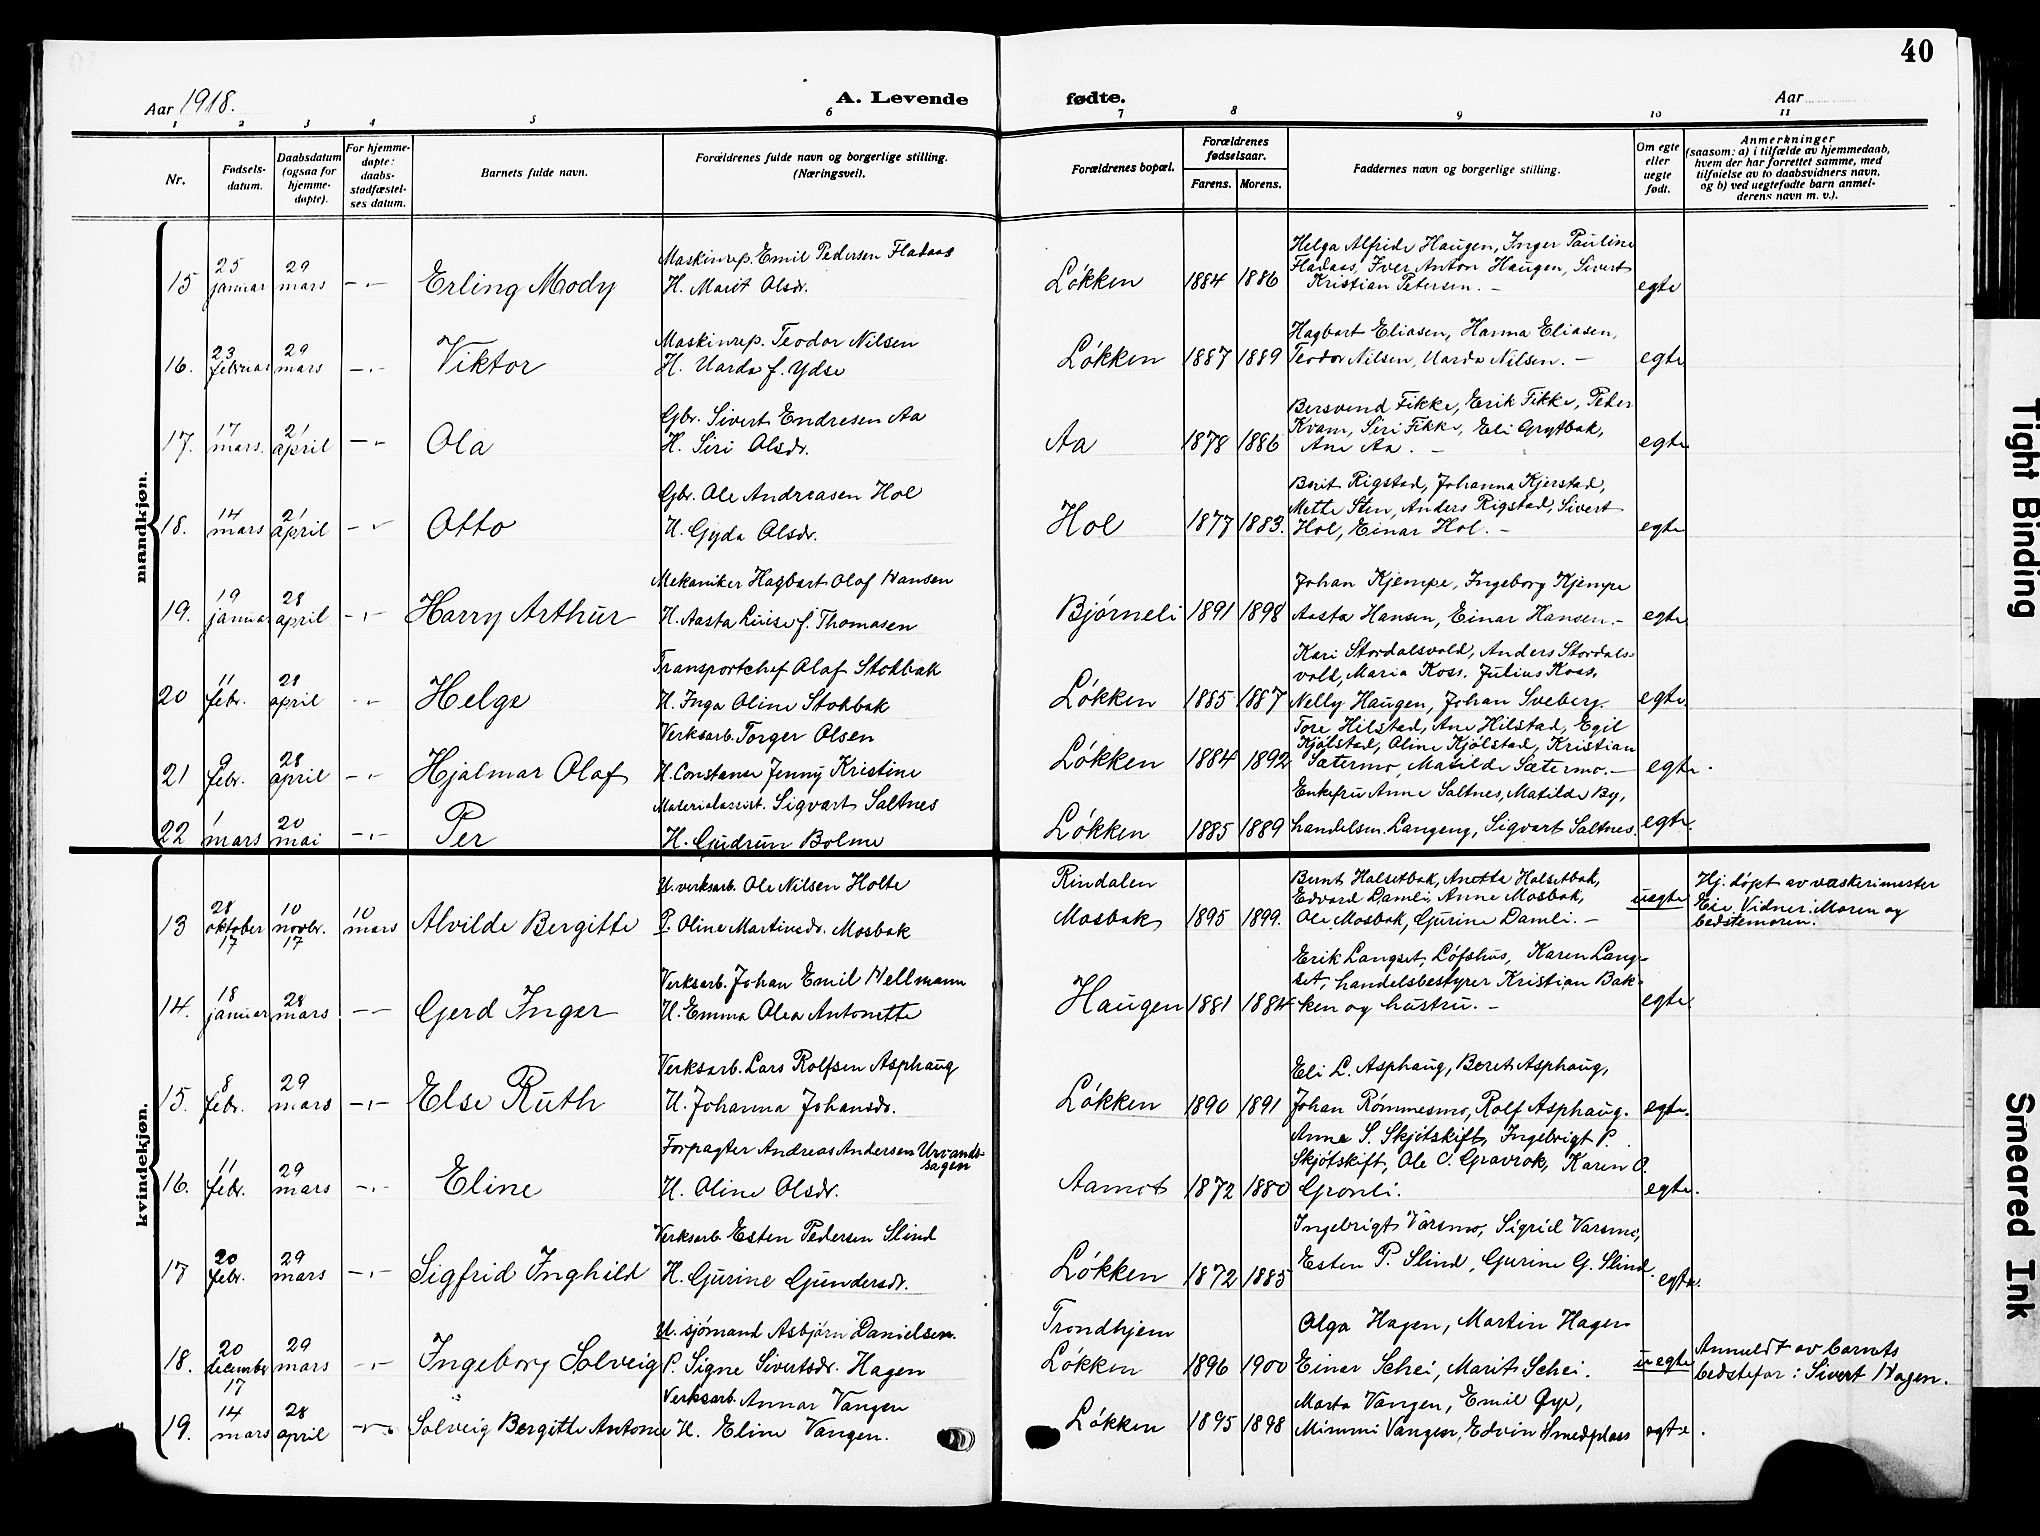 40
Aar 1918.
A. Levende fødte.
Aar
1 2 3 4 5 6 7 8 9 10 11
Nr.
Fødsels-
datum.
Daabsdatum
(ogsaa for
hjemme-
døpte).
For hjemme-
døpte:
daabs-
stadfæstel-
ses datum.
Barnets fulde navn.
Forældrenes fulde navn og borgerlige stilling.
(Næringsvei).
Forældrenes bopæl.
Forældrenes
fødselsaar.
Farens. Morens.
Faddernes navn og borgerlige stilling.
Om egte
eller
uegte
født.
Anmerkninger
(saasom: a) i tilfælde av hjemmedaab,
hvem der har forrettet samme, med
tilføielse av to daabsvidners navn,
og b) ved uegtefødte barn anmel-
derens navn m. v.).
mandkjøn.
15 25 januar 29 mars -"- Erling Mody
Maskinrep. Emil Pedersen Fladaas
H. Marit Olsdr.
Løkken 1884 1886
Helga Alfride Haugen, Inger Pauline
Fladaas, Iver Anton Haugen, Sivert
Kristian Petersen. -
egte
16. 23 februar 29 mars -"- Viktor
Maskinrep. Teodor Nilsen
H. Uarda f. Ydse
Løkken 1887 1889
Hagbart Eliasen, Hanna Eliasen,
Teodor Nilsen, Uarda Nilsen. -
egte
17. 17 mars. 21 april -"- Ola
Gbr. Sivert Endresen Aa
H. Siri Olsdr.
Aa 1878 1886
Bersvend Fikke, Erik Fikke, Peder
Kvam, Siri Fikke, Eli Grytbak,
Ane Aa. -
egte
18. 14 mars 21 april -"- Otto
Gbr. Ole Andreasen Hol
H. Gyda Olsdr.
Hol 1877 1883.
Berit Rigstad, Johanna Kjerstad,
Mette Sten, Anders Rigstad, Sivert
Hol, Einar Hol. -
egte
19. 19 januar 28 april -"- Harry Arthur
Mekaniker Hagbart Olaf Hansen
H. Aasta Luise f. Thomasen
Bjørneli 1891 1898
Johan Kjempe, Ingeborg Kjempe
Aasta Hansen, Einar Hansen. -
egte
20 11 febr. 28 april -"- Helge
Transportchef Olaf Stokbak
H. Inga Oline Stokbak
Løkken 1885 1887
Kari Stordalsvold, Anders Stordals-
vold, Maria Koss, Julius Koss,
Nelly Haugen, Johan Sveberg.
egte
21 9 febr. 28 april -"- Hjalmar Olaf
Verksarb. Torger Olsen
H. Constanse Jenny Kristine
Løkken 1884 1892
Tore Hilstad, Ane Hilstad, Egil
Kjølstad, Oline Kjølstad, Kristian
Sætermo, Matilde Sætermo. -
egte.
22 1 mars 20 mai -"- Per
Materialassist. Sigvart Saltnes
H. Gudrun Bolme
Løkken 1885 1889
Enkefru Anne Saltnes, Matilde By,
handelsm. Langeng, Sigvart Saltnes.
egte.
kvindekjøn.
13 28 oktober 17 10 novbr. 17 10 mars Alvilde Bergitte
U. verksarb. Ole Nilsen Holte
P. Oline Martinsdr. Mosbak
Rindalen
Mosbak 1895 1899.
Bernt Halsetbak, Anette Halsetbak,
Edvard Damli, Anne Mosbak,
Ole Mosbak, Gurine Damli. -
uegte
Hj. døpt av vaskerimester
Eie. Vidner: Moren og
bedstemoren.
14. 18 januar 28 mars -"- Gerd Inger
Verksarb. Johan Emil Hellmann
H. Emma Olea Antonette
Haugen 1881 1884
Erik Langset, Løfshus, Karen Lang-
set, handelsbestyrer Kristian Bak-
ken og hustru. -
egte.
15. 8 febr. 29 mars -"- Else Ruth
Verksarb. Lars Rolfsen Asphaug
H. Johanna Johansdr.
Løkken 1890 1891
Eli L. Asphaug, Beret Asphaug,
Johan Rømmesmo, Rolf Asphaug.
egte.
16. 11 febr. 29 mars -"- Eline
Forpagter Andreas Andersen Urvands-
sagen
H. Oline Olsdr.
Aamot 1872 1880
Anne S. Skjøtskift, Ingebrigt P.
Skjøtskift, Ole C. Gravrok, Karen O.
Grønli.
egte.
17 20 febr. 29 mars -"- Sigfrid Inghild
Verksarb. Esten Pedersen Slind
H. Gurine Gundersdr.
Løkken 1872 1885
Ingebrigt Varsmo, Sigrid Varsmo,
Esten P. Slind, Gurine G. Slind.
egte.
18. 20 december 17 29 mars -"- Ingeborg Solveig
U. sjømand Asbjørn Danielsen.
P. Signe Sivertsdr. Hagen
Trondhjem
Løkken 1896 1900
Olga Hagen, Martin Hagen
Einar Schei, Marit Schei.
uegte
Anmeldt av barnets
bedstefar: Sivert Hagen.
19. 14 mars 28 april -"- Solveig Bergitte Antonie
Verksarb. Annar Vangen
H. Eline Vangen.
Løkken 1895 1898
Marta Vangen, Emil Øye,
Mimmi Vangen, Edvin Smedplass
egte.
Tight Binding
Smeared Ink